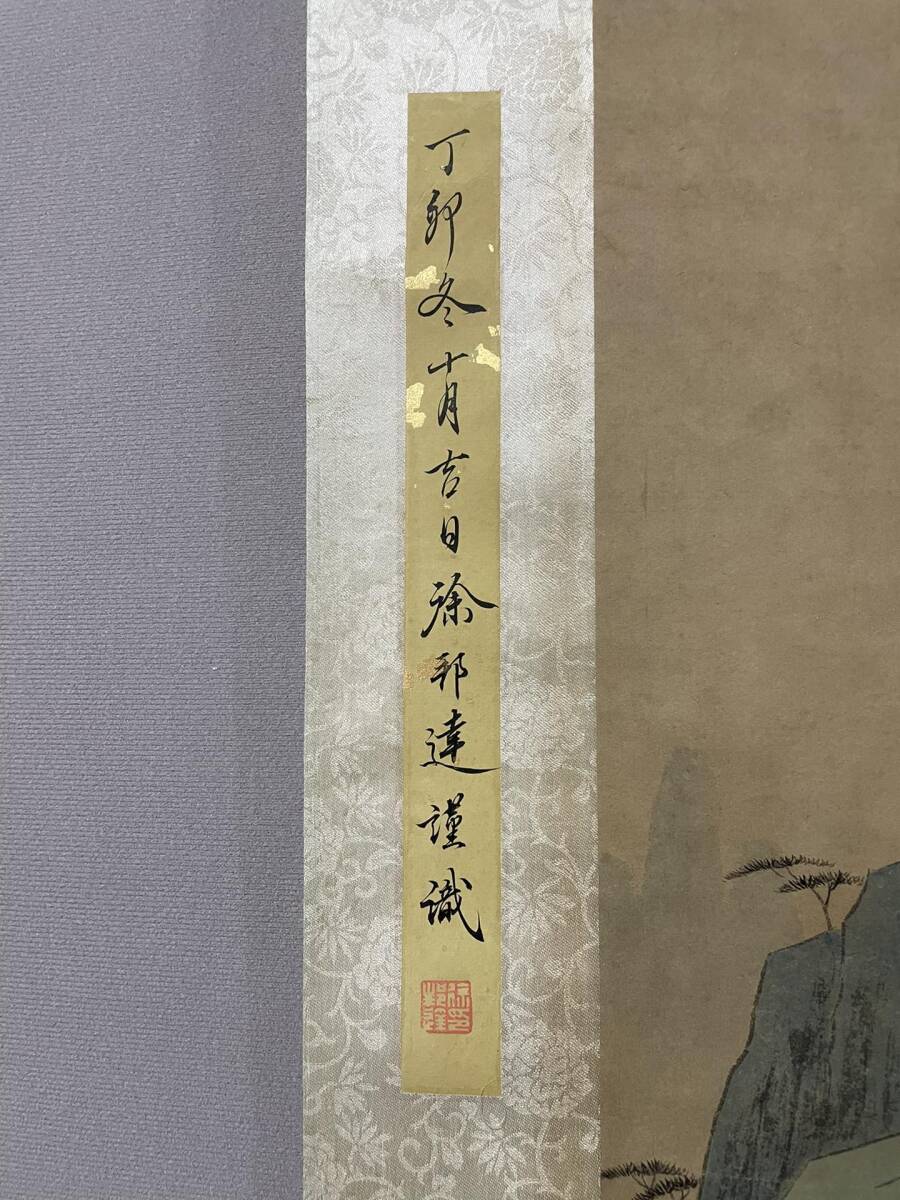 丁卯冬十月吉日徐邦達謹識